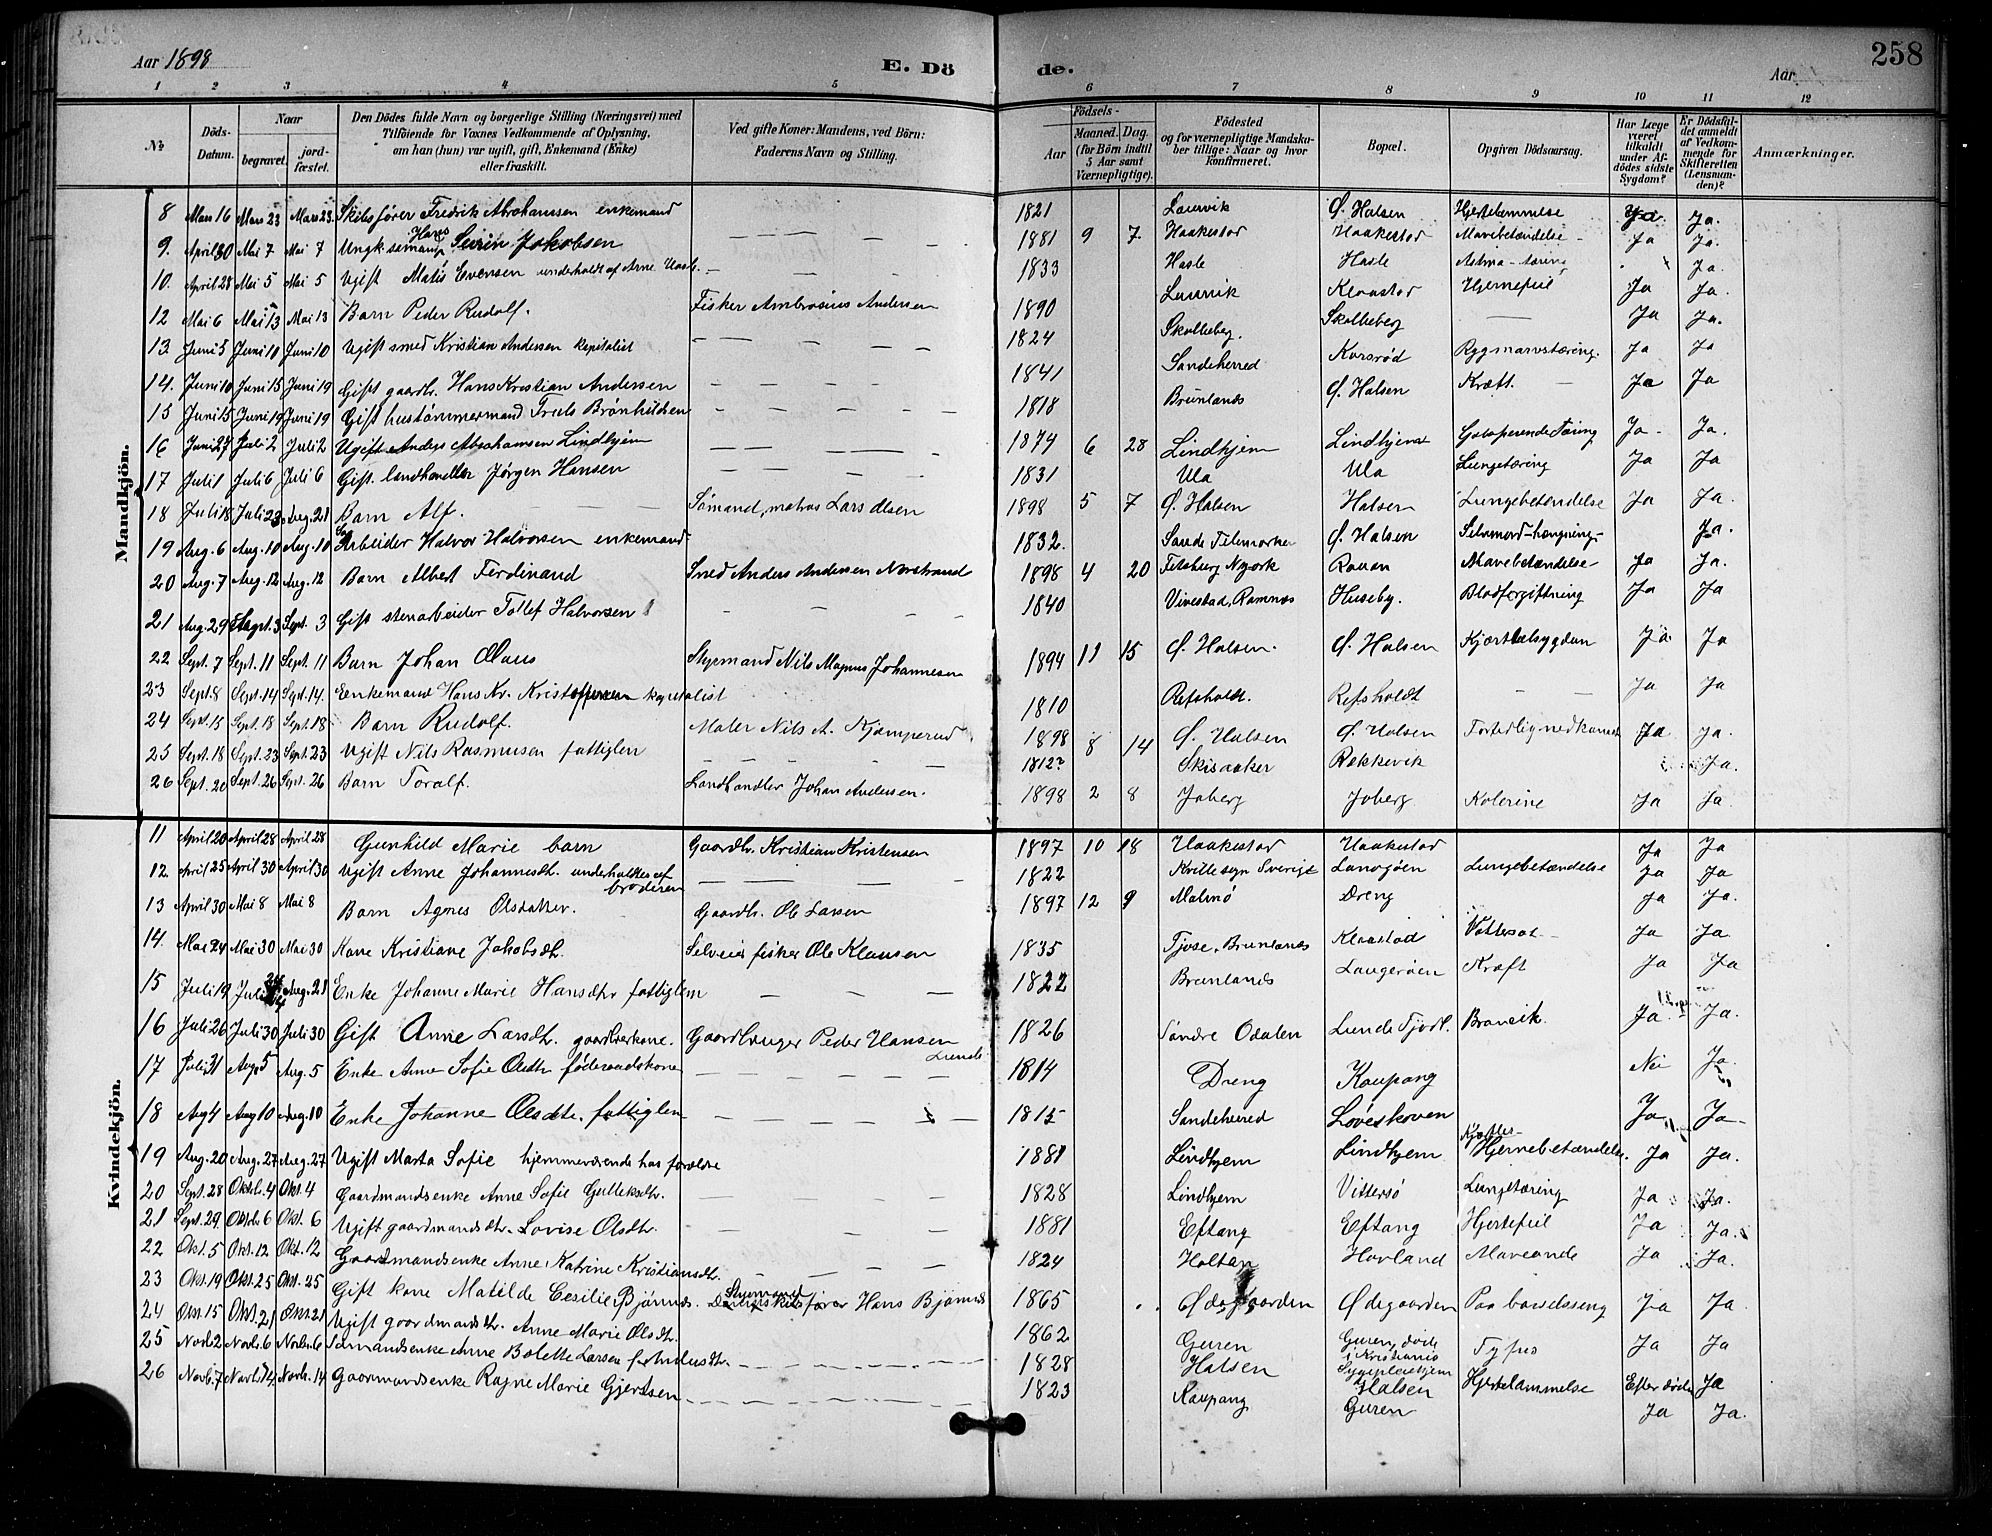 Aar 1898
E. Dö
de.
Aar
258
1 2 3 4 5 6 7 8 9 10 11 12
№
Döds-Datum.
Naar
begravet.
jord-fæstet.
Den Dödes fulde Navn og borgerlige Stilling (Næringsvei) med
Tilföiende for Voxnes Vedkommende af Oplysning,
om han (hun) var ugift, gift, Enkemand (Enke)
eller fraskilt.
Ved gifte Koner: Mandens, ved Börn:
Faderens Navn og Stilling.
Födsels-
Aar
Maaned. Dag.
(for Börn indtil
5 Aar samt
Værnepligtige).
Födested
og for værnepligtige Mandska-
ber tillige: Naar og hvor
konfirmeret.
Bopæl.
Opgiven Dödsaarsag.
Har Læge
været
tilkaldt
under Af-
dödes sidste
Sygdom?
Er Dödsfal-
det anmeldt
af Vedkom-
mende for
Skifteretten
(Lensman-
den)?
Anmærkninger.
Mandkjön.
8 Mars 16 Mars 23 Mars 23 Skibsfører Fredrik Abrahamsen enkemand 1821 Laurvik Ø. Halsen Hjertelammelse Ja Ja.
9. April 30 Mai 7 Mai 7 Ungk. sømand Hans Severin Jakobsen 1881 9 7. Haakestad Haakestad Mavebetændelse Ja Ja.
10. April 28 Mai 5 Mai 5 Ugift Matis Evensen underholdt af Arne Hasle 1833 Hasle Hasle Astma-tæring Ja.
12 Mai 6 Mai 13 Mai 13 Barn Peder Rudolf. Fisker Ambrosius Andersen 1890 Laurvik Klaastad Hjernefeil Ja Ja.
13 Juni 5 Juni 11 Juni 10 Ugift smed Kristian Andersen kapitalist 1824 Skolleberg. Skolleberg Ja Ja.
14. Juni 10 Juni 15 Juni 19 Gift gaardbr. Hans Kristian Andersen 1841 Sandeherred Korsrød Rygmarvstæring. Ja Ja
15 Juni 15 Juni 19 Juni 19 Gift hustømmermand Truls Brønhildsen 1818 Brunlanæs Ø. Halsen Kræft. Ja Ja
16 Juni 27 Juli 2 Juli 2 Ugift Anders Abrahamsen Lindhjem 1874 6 28 Lindhjem Lindhjem Galoperende Tæring Ja Ja.
17 Juli 1 Juli 6 Juli 6 Gift. landhandler Jørgen Hansen 1831 Ula Ula Lungetæring Ja Ja
18 Juli 18 Juli 23 Aug. 21 Barn Alf. Sømand, matros Lars Olsen 1898 5 7 Ø. Halsen Halsen Lungebetændelse Ja Ja.
19 Aug. 6 Aug. 10 Aug. 10 Arbeider Halvor Halvorsen enkemand 1832. Saude Telemarken Ø. Halsen Selvmord-hængning Ja.
20 Aug. 7 Aug. 12 Aug. 12 Barn Albert Ferdinand Smed Anders Andersen Norstrand 1898 4 20 Nyork Rauan Mavebetændelse Ja Ja.
21 Aug. 29 Sept. 3 Sept. 3 Gift stenarbeider Tollef Halvorsen 1840 Vivestad, Ramnæs Huseby. Blodforgiftning Ja Ja
22 Sept. 7 Sept. 11 Sept. 11 Barn Johan Olaus Styrmand Nils Magnus Johannesen 1894 11 15 Ø. Halsen. Ø. Halsen Kjertelsygdom Ja Ja
23 Sept. 8 Sept. 14 Sept. 14. Enkemand Hans Kr. Kristoffersen kapitalist 1810 Refsholdt. Refsholdt Ja Ja
24 Sept. 15 Sept. 18 Sept. 18 Barn Rudolf. Maler Nils A. Kjamperud 1898 8 14 Ø. Halsen Ø. Halsen Fortidlig nedkomst Ja Ja.
25 Sept. 18 Sept. 23 Sept. 23 Ugift Nils Rasmusen fattiglem 1812? Skisaaker Rekkevik Ja.
26 Sept. 20 Sept. 26 Sept. 26 Barn Toralf. Landhandler Johan Andersen. 1898 2 8 Joberg Joberg Kolerine Ja Ja.
Kvindekjön.
11 April 20 April 28 April 28 Gunhild Marie barn Gaardbr. Kristian Kristensen 1897 10 18 Haakestad Haakestad Ja Ja
12. April 25 April 30 April 30 Ugift Anne Johannesdtr. underholdtes af broderen 1822 Sverige Lungebetændelse Ja Ja
13 April 30 Mai 8 Mai 8 Barn Agnes Olsdatter. Gaardbr. Ole Larsen 1897 12 9 Malmø Dreng Ja Ja.
14. Mai 24 Mai 30 Mai 30 Kone Kristiane Jakobsdtr. Selveier fisker Ole Klausen 1835 Tjose, Brunlanæs Klaastad Vattersot Ja Ja
15 Juli 19 Juli 24 Aug. 21 Enke Johanne Marie Hansdtr fattiglem 1822 Brunlanæs Langeröen Kræft Ja Ja
16 Juli 26 Juli 30 Juli 30 Gift Anne Larsdtr. gaardbrkone. Gaardbruger Peder Hansen Lunde 1826 Søndre Odalen Lunde Tjodl. Brævik. Ja Ja.
17 Juli 31 Aug. 5 Aug. 5 Enke Anne Sofie Olsdtr föderaadskone 1814 Dreng Kaupang Nei Ja
18 Aug 4 Aug 10 Aug. 10 Enke Johanne Olsdtr. fattiglem 1815 Sandeherred Løveskoven Ja Ja
19 Aug. 20 Aug. 27 Aug. 27 Ugift Marta Sofie hjemmeværende hos forældre 1881 Lindhjem Lindhjem Hjernebetændelse. Ja Ja.
20 Sept. 28 Oktb. 4 Okt. 4 Gaardmandsenke Anne Sofie Gulleksdtr. 1828 Lindhjem Vittersø Lungetæring Ja Ja.
21 Sept. 29. Oktb. 6 Okt. 6 Ugift gaardmandsdtr. Lovise Olsdtr. 1881 Eftang Eftang Hjertefeil Ja Ja.
22 Okt. 5 Okt. 12 Okt. 12 Gaardmandsenke Anne Katrine Kristiansdtr. 1824 Holtan Hovland Maveonde Ja Ja.
23 Okt. 19 Okt. 25 Okt. 25 Gift kone Matilde Cesilie Bjönnes. Styrmand Hans Bjønnes 1865 Ødegaarden Ødegaarden Paa barselsseng Ja Ja.
24 Okt. 15 Okt. 21 Okt. 21 Ugift gaardmandsdtr. Anne Marie Olsdtr. 1862 Guren Guren, døde i Kristiania Sygepleiehjem Tyfus Ja Ja
25 Novb. 2 Novb. 6 Novb. 6 Sømandsenke Anne Bolette Larsen 1828 Halsen Halsen Hjertelammelse Efter döden Ja
26 Novb. 7 Novb. 14. Novb. 14 Gaarmandsenke Ragne Marie Gjertsen 1823 Kaupang Guren Ja Ja.